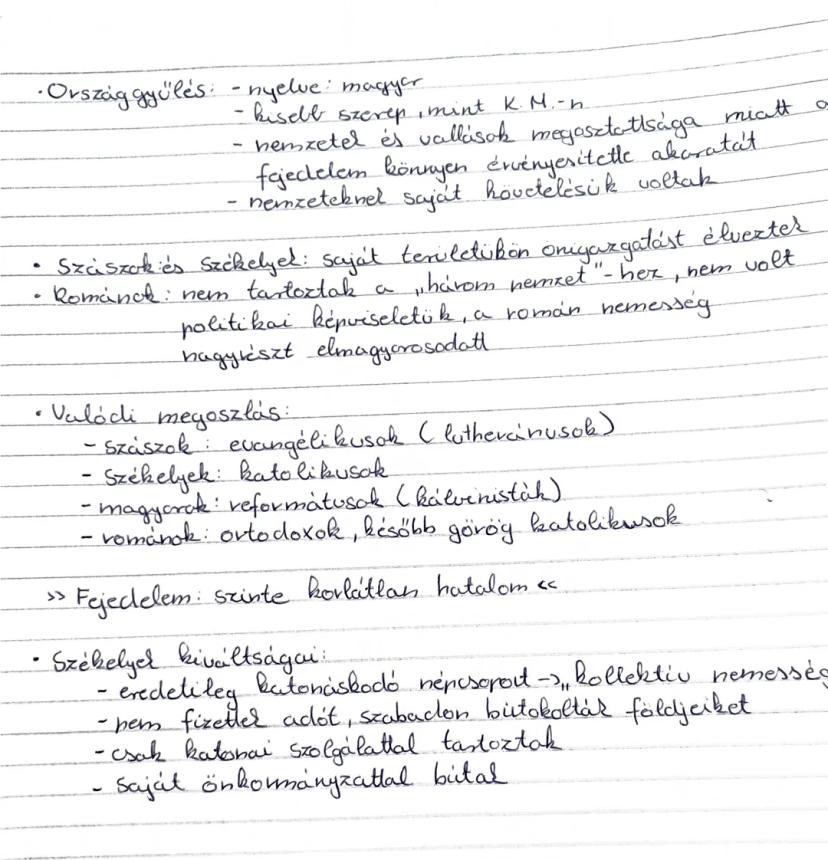 · Országgyűlés: - nyelve: magyar
- kisebb szerep, mint K.M.-n
- nemzetek és vallások megosztottsága miatt a
fejedelem könnyen érvényesítette akaratát
- nemzeteknek saját követelésük voltak
· Szászok és székelyek: saját területükön önigazgatást élveztek
· Románok: nem tartoztak a „három nemzet"-hez, nem volt
politikai képviseletük, a román nemesség
nagyrészt elmagyarosodott
· Valódi megoszlás:
- szászok: evangélikusok (lutheránusok)
- székelyek: katolikusok
- magyarok: reformátusok (kálvinisták)
- románok: ortodoxok, később görög katolikusok
>> Fejedelem: szinte korlátlan hatalom <<
· Székelyek kiváltságai:
- eredetileg katonáskodó népcsoport → „kollektív nemesség
- nem fizettek adót, szabadon birtokolták földjeiket
- csak katonai szolgálattal tartoztak
- saját önkormányzattal bírtak